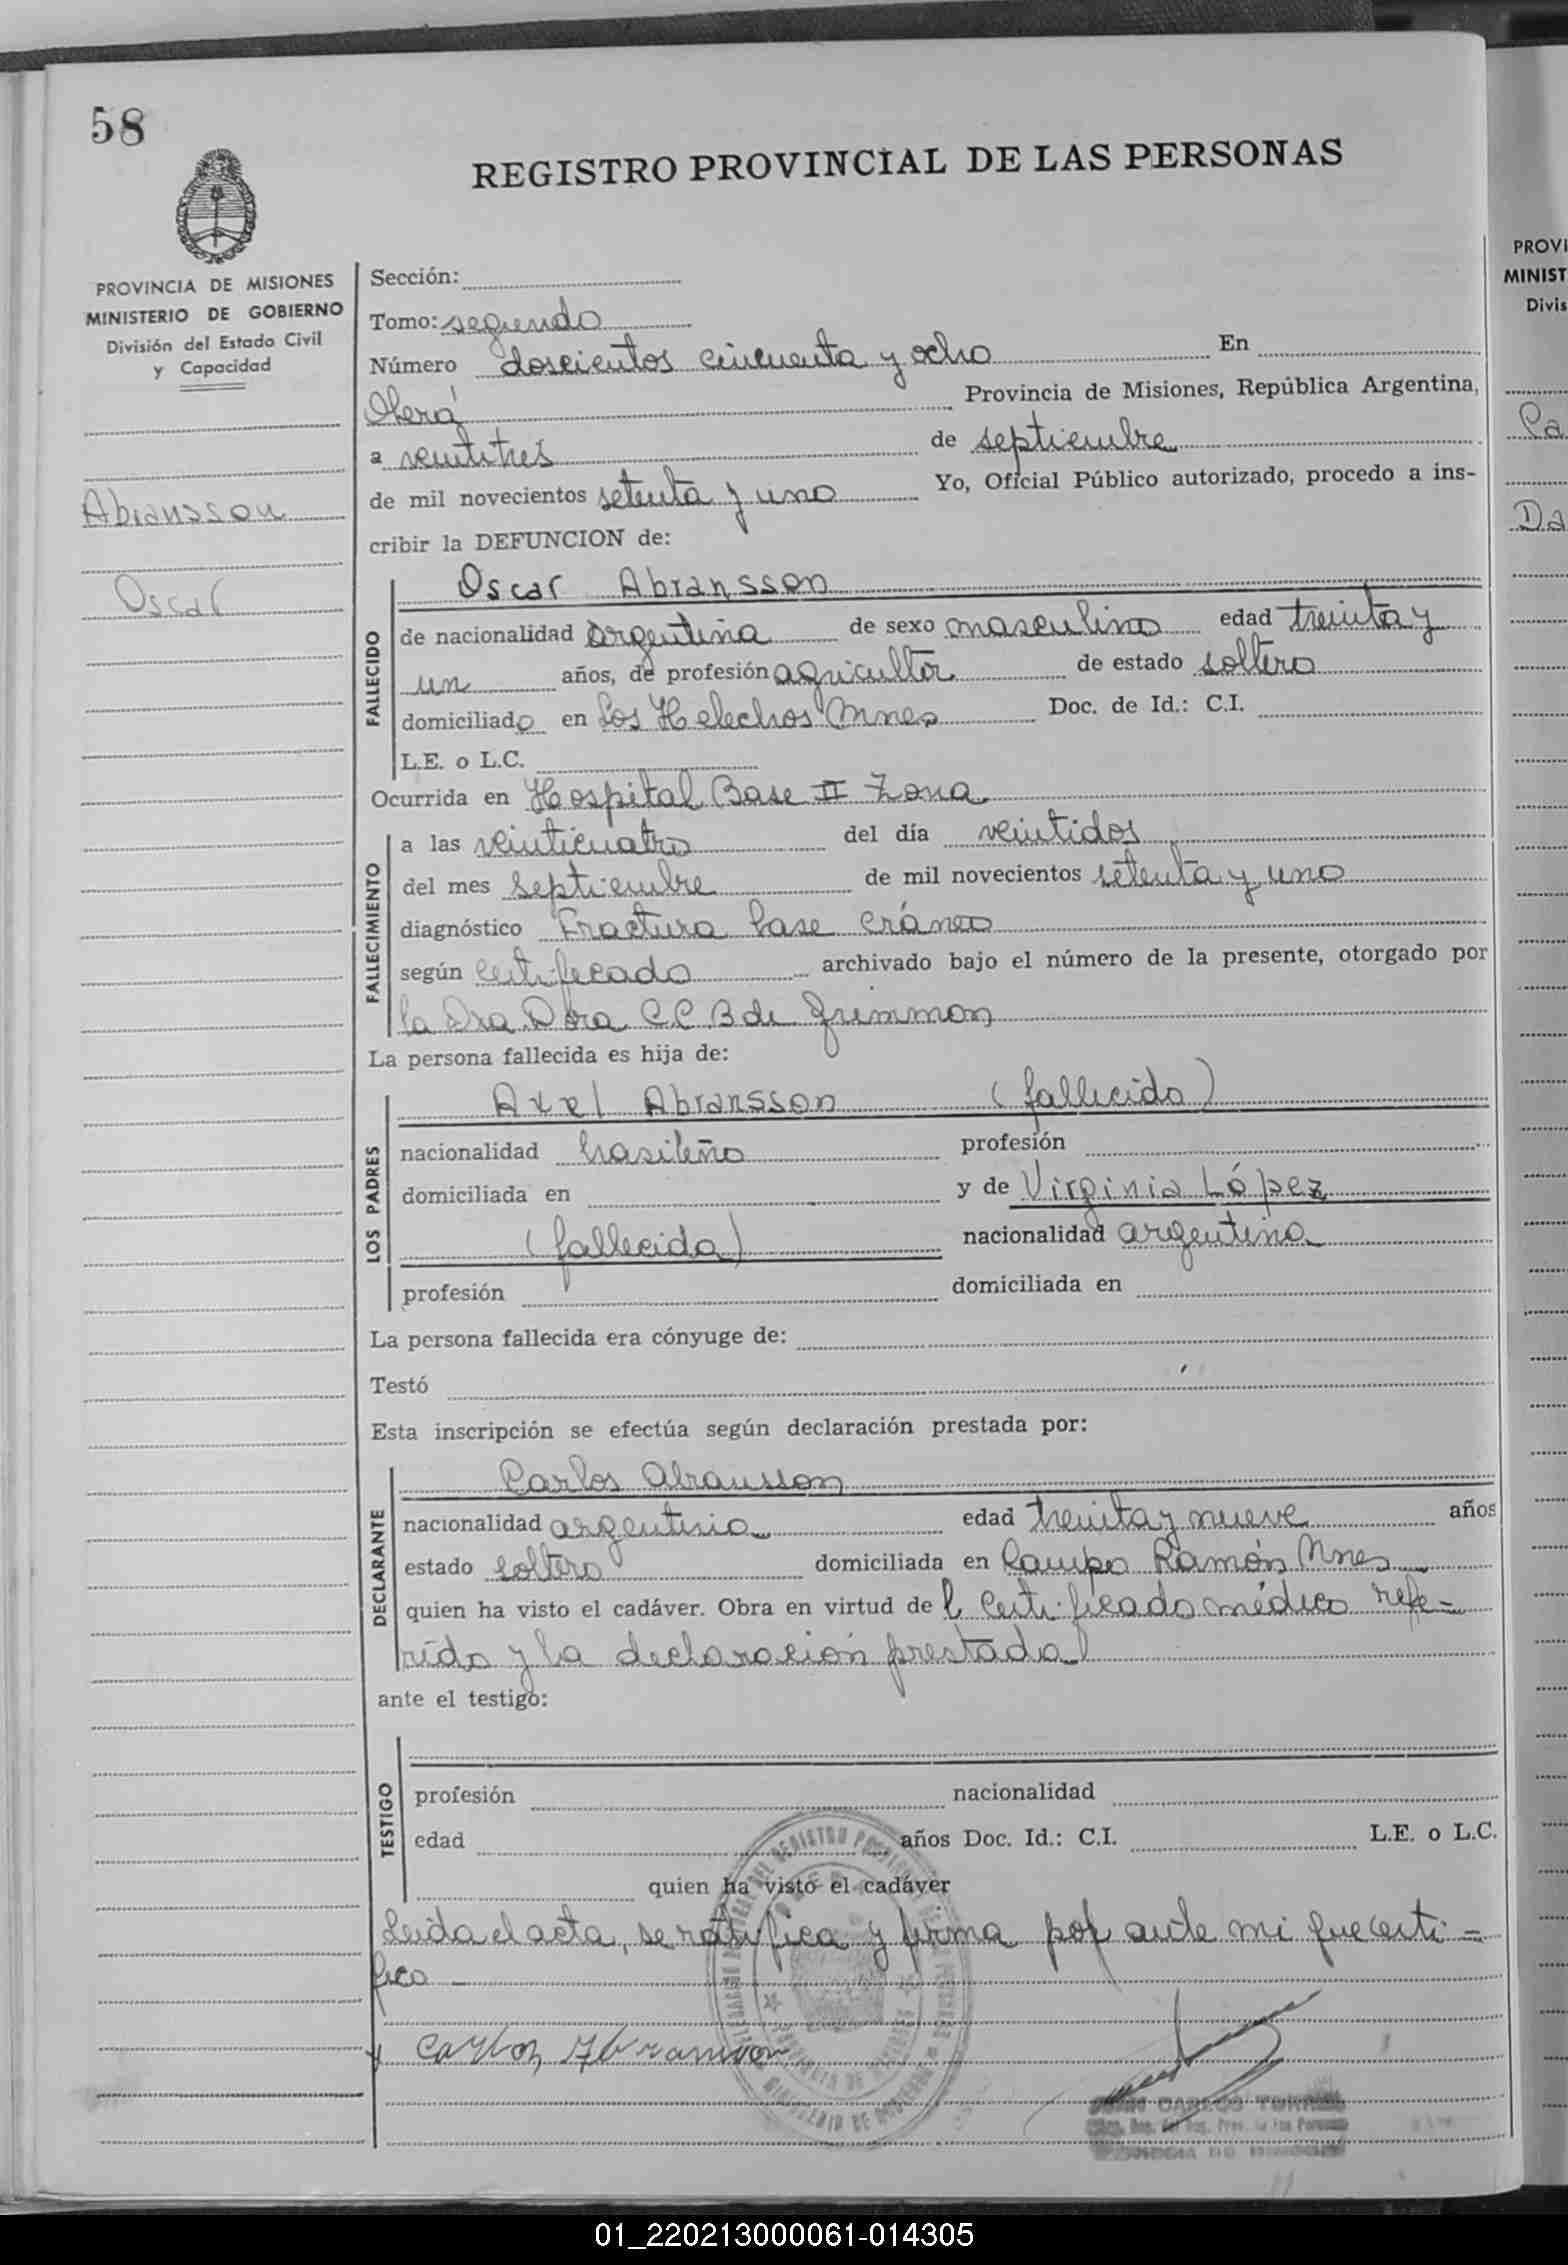 58
REGISTRO PROVINCIAL DE LAS PERSONAS
PROVINCIA DE MISIONES
MINISTERIO DE GOBIERNO
División del Estado Civil
y Capacidad
Abransson
Oscar
Sección:
Tomo: segundo
Número doscientos cincuenta y ocho En
Oberá Provincia de Misiones, República Argentina,
a veintitrés de septiembre
de mil novecientos setenta y uno Yo, Oficial Público autorizado, procedo a ins-
cribir la DEFUNCION de:
FALLECIDO
Oscar Abransson
de nacionalidad argentina de sexo masculino edad treinta y
un años, de profesión agricultor de estado soltero
domiciliado en Los Helechos Mnes Doc. de Id.: C.I.
L.E. o L.C.
Ocurrida en Hospital Base II Zona
FALLECIMIENTO
a las veinticuatro del día veintidos
del mes septiembre de mil novecientos setenta y uno
diagnóstico Fractura base cráneo
según certificado archivado bajo el número de la presente, otorgado por
la Dra Dora C.C.B de
La persona fallecida es hija de:
LOS PADRES
Axel Abransson (fallecido)
nacionalidad brasileño profesión
domiciliada en y de Virginia López
(fallecida) nacionalidad argentina
profesión domiciliada en
La persona fallecida era cónyuge de:
Testó
Esta inscripción se efectúa según declaración prestada por:
DECLARANTE
Carlos Abransson
nacionalidad argentino edad treinta y nueve años
estado soltero domiciliada en Campo Ramón Mnes
quien ha visto el cadáver. Obra en virtud de l certificado médico refe-
rido y la declaración prestada
ante el testigo:
TESTIGO
profesión nacionalidad
edad años Doc. Id.: C.I. L.E. o L.C.
quien ha visto el cadáver
Leida el acta, se ratifica y firma por ante mi que certi-
fico -
Carlos Abransson
JUAN CARLOS
PROVI
MINIST
Divis
Ca
Da
01_220213000061-014305